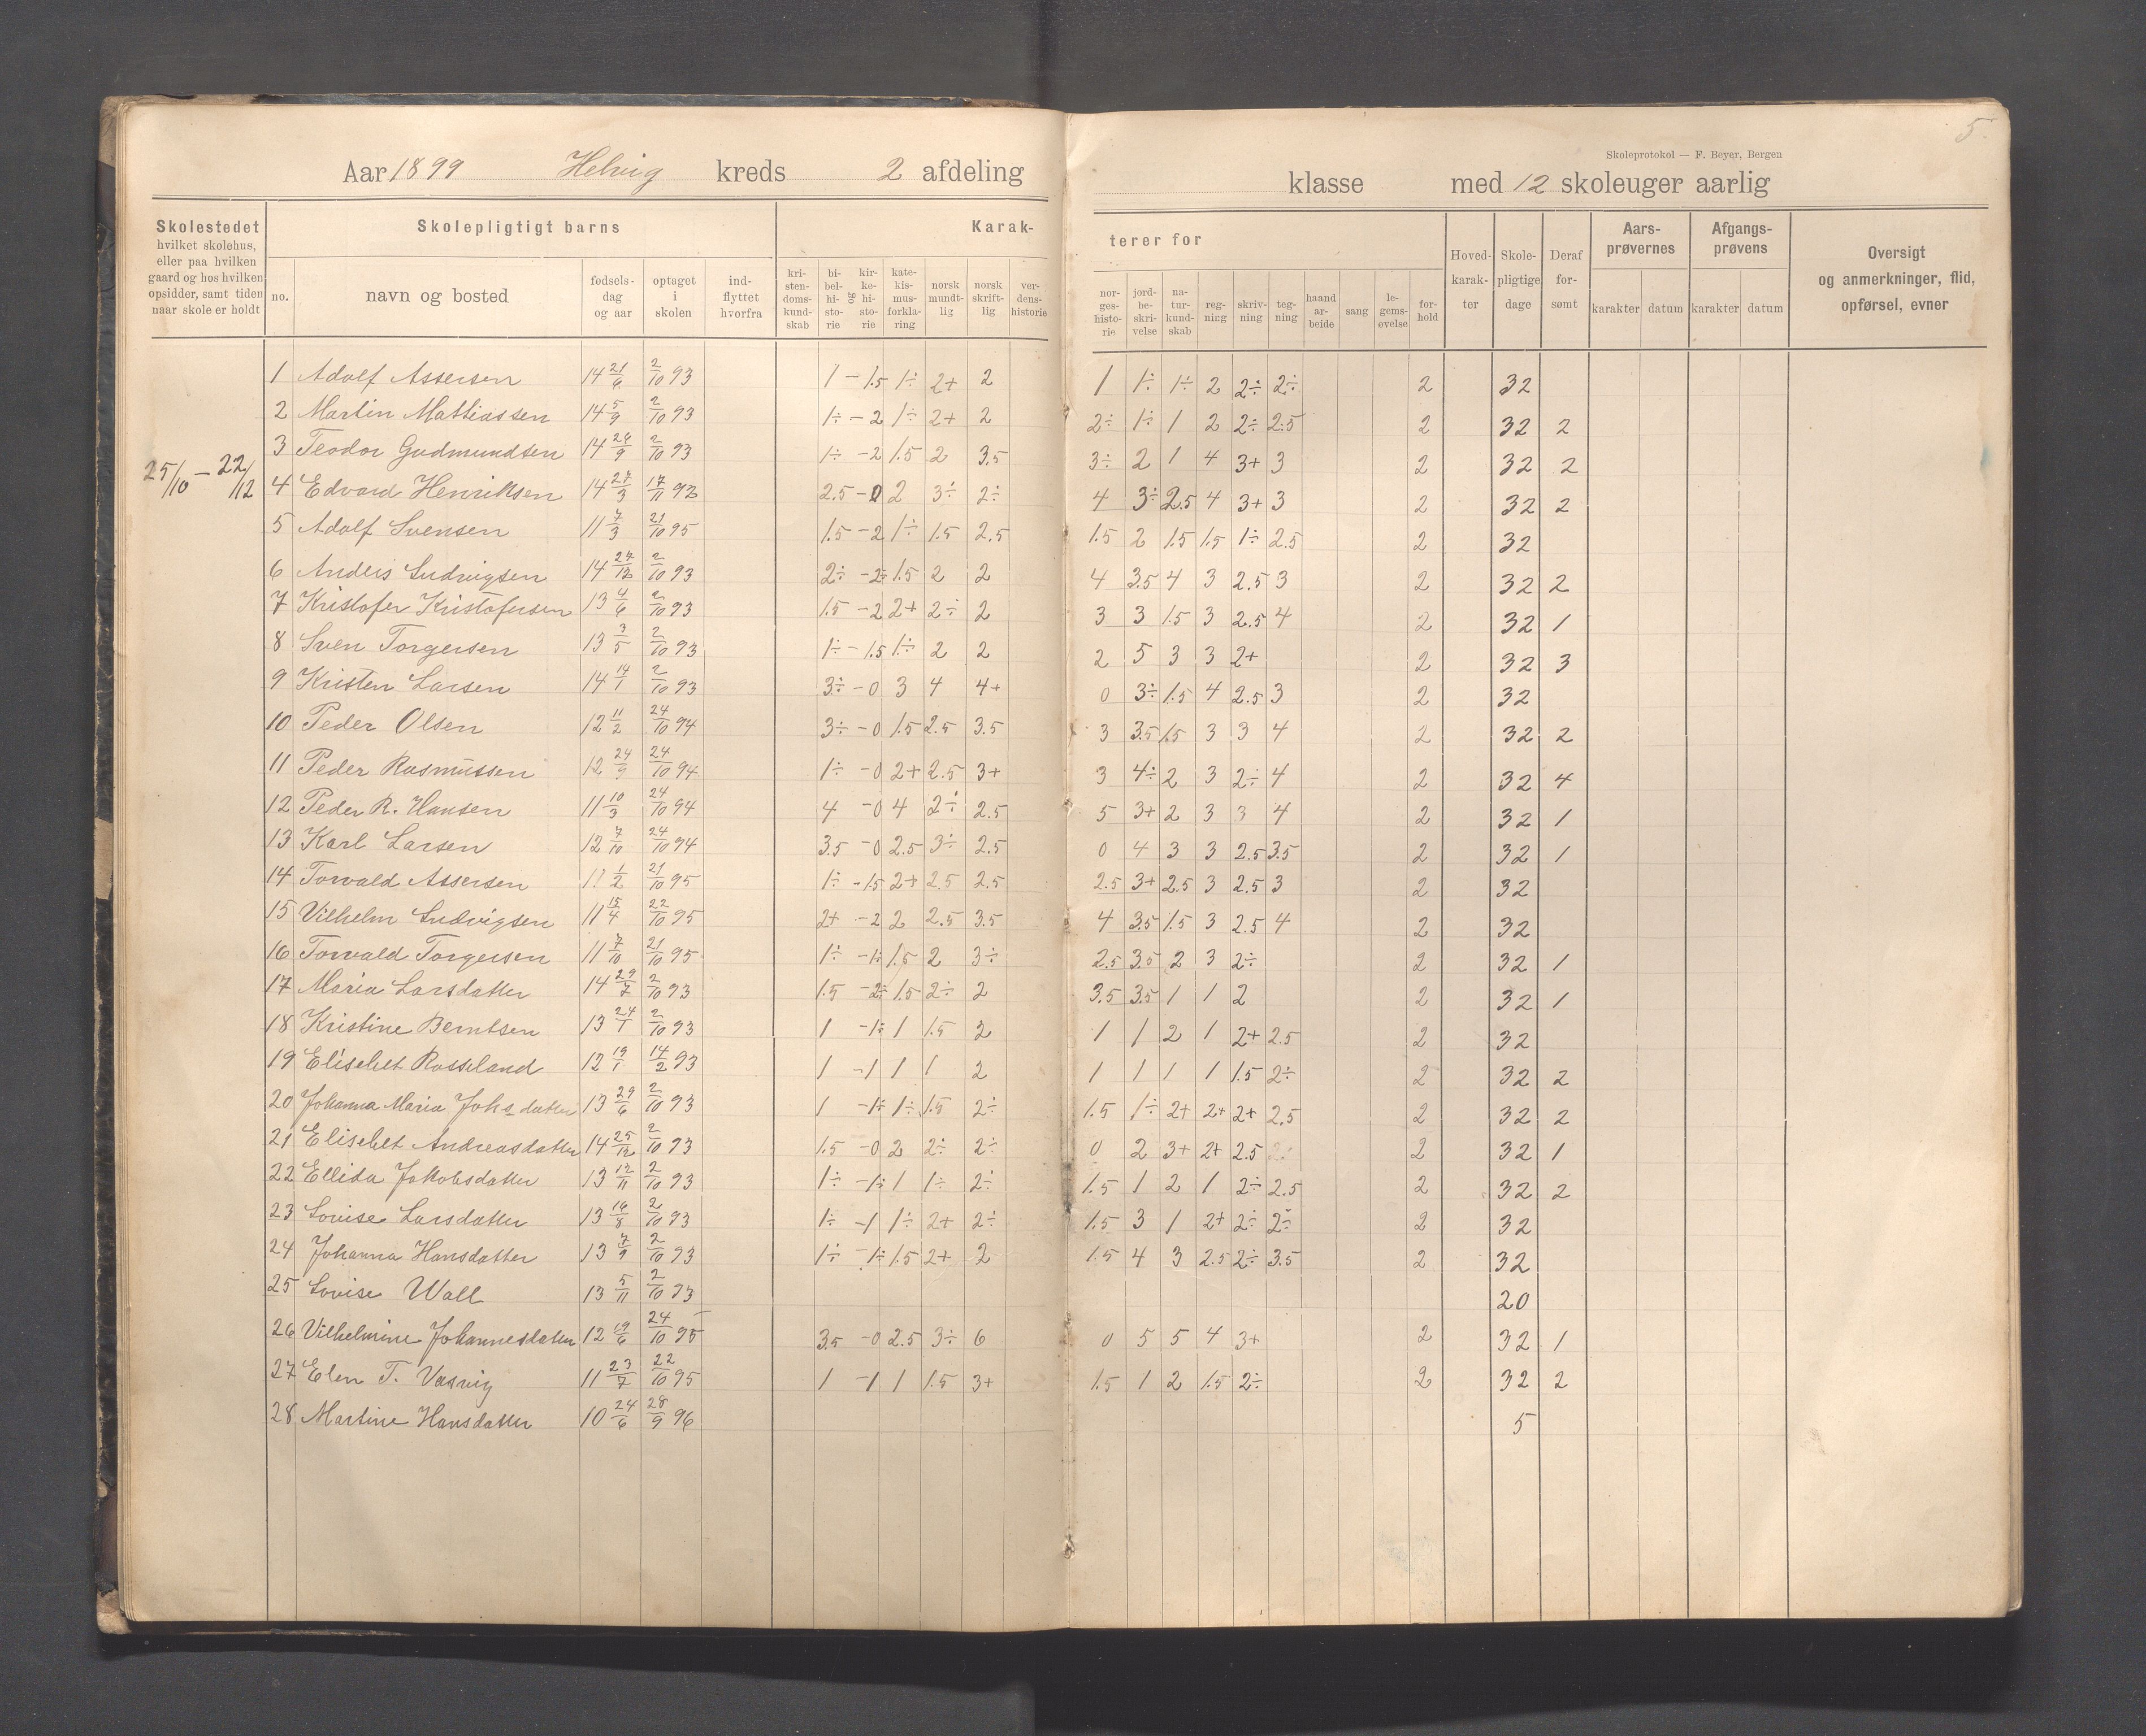 5.
Skoleprotokol — F. Beyer, Bergen
Aar 1899 Helvig kreds 2 afdeling klasse med 12 skoleuger aarlig
Skolestedet hvilket skolehus, eller paa hvilken gaard og hos hvilken opsidder, samt tiden naar skole er holdt
Skolepligtigt barns
Karak- terer for
no. navn og bosted fødsels-dag og aar optaget i skolen ind-flyttet hvorfra
kri-sten-doms-kund-skab bi-bel-hi-sto-rie og kir-ke-hi-sto-rie kate-kis-mus-forkla-ring norsk mundt-lig norsk skrift-lig ver-dens-historie
nor-ges-histo-rie jord-be-skri-velse na-tur-kund-skab reg-ning skriv-ning teg-ning haand ar-beide sang le-gems-øvelse for-hold
Hoved-karak-ter Skole-pligtige dage Deraf for-sømt
Aars-prøvernes karakter datum
Afgangs-prøvens karakter datum
Oversigt og anmerkninger, flid, opførsel, evner
25/10 — 22/12
1 Adolf Assersen 14 21/6 2/10 93 1 – 1.5 1÷ 2+ 2 1 1÷ 1÷ 2 2÷ 2÷ 2 32
2 Martin Mattiassen 14 5/9 2/10 93 1÷ – 2 1÷ 2+ 2 2÷ 1÷ 1 2 2÷ 2.5 2 32 2
3 Teodor Gudmundsen 14 24/9 2/10 93 1÷ – 2 1.5 2 3.5 3÷ 2 1 4 3+ 3 2 32 2
4 Edvard Henriksen 14 27/3 17/11 92 2.5 – 0 2 3÷ 2÷ 4 3÷ 2.5 4 3+ 3 2 32 2
5 Adolf Svensen 11 7/3 21/10 95 1.5 – 2 1÷ 1.5 2.5 1.5 2 1.5 1.5 1÷ 2.5 2 32
6 Anders Ludvigsen 14 27/12 2/10 93 2÷ – 2÷ 1.5 2 2 4 3.5 4 3 2.5 3 2 32 2
7 Kristofer Kristofersen 13 4/6 2/10 93 1.5 – 2 2+ 2÷ 2 3 3 1.5 3 2.5 4 2 32 1
8 Sven Torgersen 13 3/5 2/10 93 1÷ – 1.5 1÷ 2 2 2 5 3 3 2+ 2 32 3
9 Kristen Larsen 14 14/1 2/10 93 3÷ – 0 3 4 4+ 0 3÷ 1.5 4 2.5 3 2 32
10 Peder Olsen 12 11/2 24/10 94 3÷ – 0 1.5 2.5 3.5 3 3.5 1.5 3 3 4 2 32 2
11 Peder Rasmussen 12 24/9 24/10 94 1÷ – 0 2+ 2.5 3+ 3 4÷ 2 3 2÷ 4 2 32 4
12 Peder R. Hansen 11 10/3 24/10 94 4 – 0 4 2÷ 2.5 5 3+ 2 3 3 4 2 32 1
13 Karl Larsen 12 7/10 24/10 94 3.5 – 0 2.5 3÷ 2.5 0 4 3 3 2.5 3.5 2 32 1
14 Torvald Assersen 11 1/2 21/10 95 1÷ – 1.5 2+ 2.5 2.5 2.5 3+ 2.5 3 2.5 3 2 32
15 Vilhelm Ludvigsen 11 15/4 22/10 95 2+ – 2 2 2.5 3.5 4 3.5 1.5 3 2.5 4 2 32
16 Torvald Torgersen 11 7/10 21/10 95 1÷ – 1÷ 1.5 2 3÷ 2.5 3.5 2 3 2÷ 2 32 1
17 Maria Larsdatter 14 29/7 2/10 93 1.5 – 2÷ 1.5 2÷ 2 3.5 3.5 1 1 2 2 32 1
18 Kristine Berntsen 13 24/1 2/10 93 1 – 1÷ 1 1.5 2 1 1 2 1 2+ 2.5 2 32
19 Elisebet Rosseland 12 19/1 14/2 93 1 – 1 1 1 2 1 1 1 1 1.5 2÷ 2 32 2
20 Johanna Maria Johs datter 13 29/6 2/10 93 1 – 1÷ 1÷ 1.5 2÷ 1.5 1÷ 2+ 2+ 2+ 2.5 2 32 2
21 Elisebet Andreasdatter 14 25/12 2/10 93 1.5 – 0 2 2÷ 2÷ 0 2 3+ 2+ 2.5 2 32 1
22 Ellida Jakobsdatter 13 12/11 2/10 93 1÷ – 1÷ 1 1÷ 2÷ 1.5 1 2 1 2÷ 2.5 2 32 2
23 Lovise Larsdatter 13 16/8 2/10 93 1÷ – 1 1÷ 2+ 2÷ 1.5 3 1 2+ 2÷ 2÷ 2 32
24 Johanna Hansdatter 13 7/9 2/10 93 1÷ – 1÷ 1.5 2+ 2 1.5 4 3 2.5 2÷ 3.5 2 32
25 Lovise Wall 13 5/11 2/10 93 20
26 Vilhelmine Johannesdatter 12 19/6 24/10 95 3.5 – 0 2.5 3÷ 6 0 5 5 4 3+ 2 32 1
27 Elen T. Vasvig 11 23/7 22/10 95 1 – 1 1 1.5 3+ 1.5 1 2 1.5 2÷ 2 32 2
28 Martine Hansdatter 10 24/6 28/9 96 5